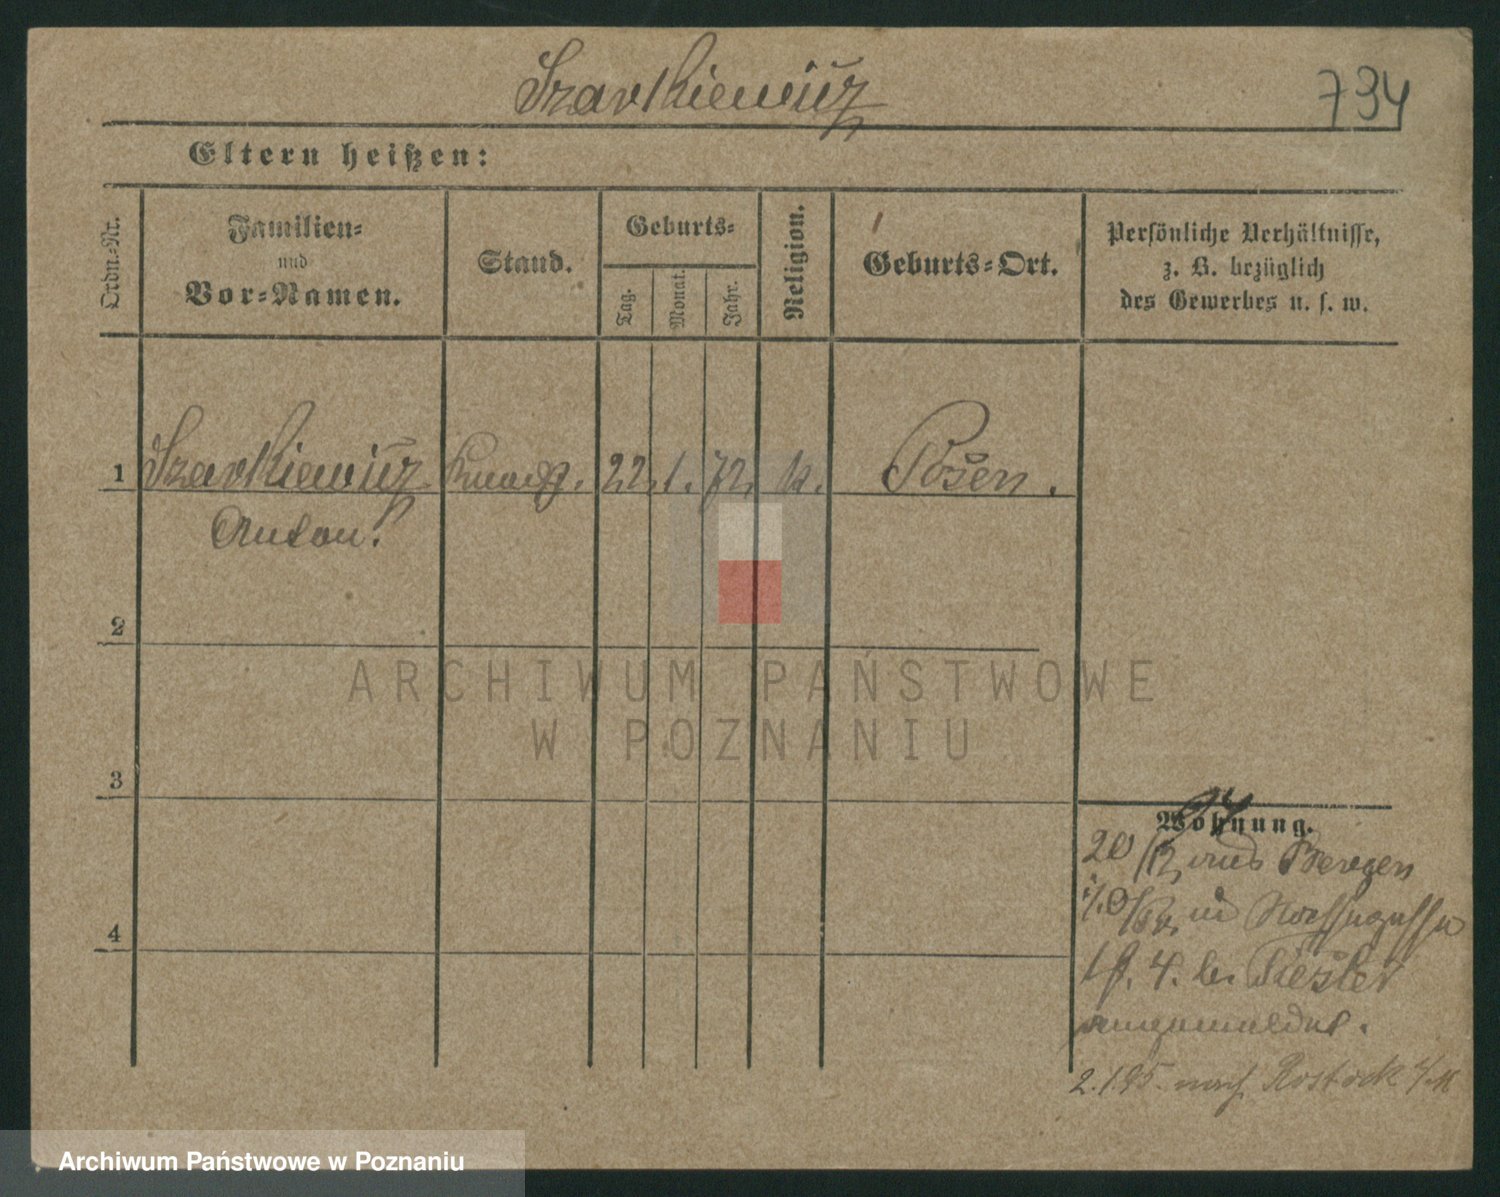 Szarkiewicz
734
Eltern heißen:
Ordn.-Nr.
Familien-
und
Vor-Namen.
Stand.
Geburts-
Tag.
Monat.
Jahr.
Religion.
Geburts-Ort.
Persönliche Verhältnisse,
z. B. bezüglich
des Gewerbes u. s. w.
1 Szarkiewicz 22. 1. 72. k. Posen.
Anton.
2
ARCHIWUM PAŃSTWOWE
W POZNANIU
3
Wohnung.
94
20/12 aus Bergen
in
4
4. bei
angemeldet.
2.1.95. nach Rostock i/M
Archiwum Państwowe w Poznaniu